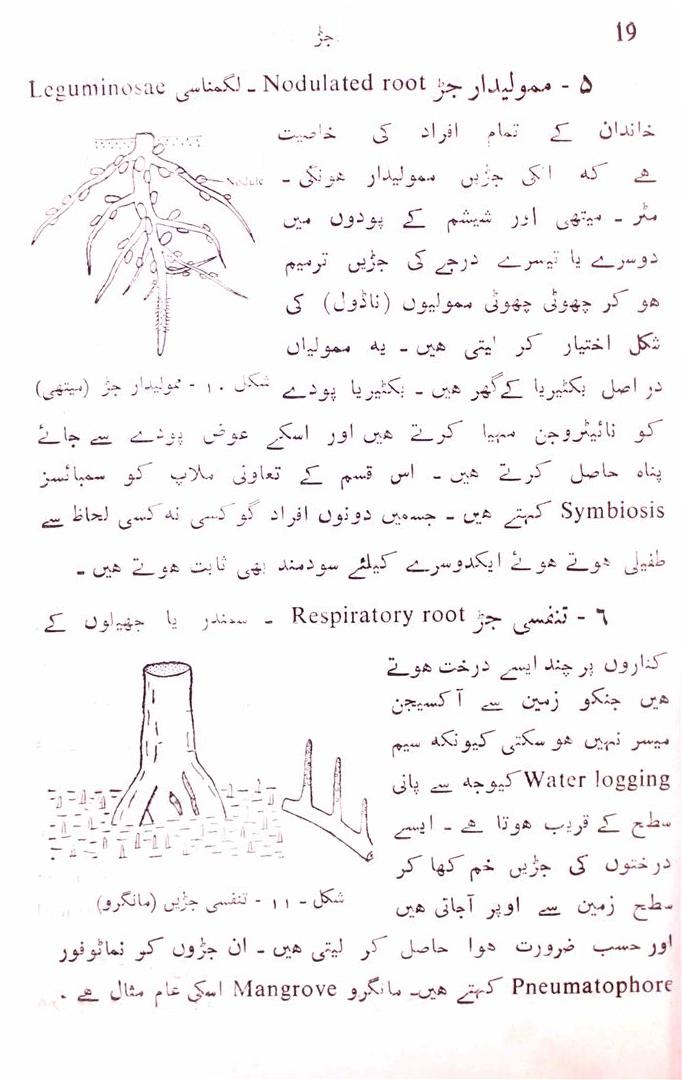 جڑ
19
۵ - ممولیدار جڑ Nodulated root - لگمناسی Leguminosae
خاندان کے تمام افراد کی خاصیت
ھے کہ انکی جڑیں ممولیدار ھونگی -
مٹر - میتھی اور شیشم کے پودوں میں
دوسرے یا تیسرے درجے کی جڑیں ترمیم
ھو کر چھوٹی چھوٹی ممولیوں (ناڈول) کی
شکل اختیار کر لیتی ھیں - یہ ممولیاں
Nodule
در اصل بکٹیریا کے گھر ھیں - بکٹیریا پودے
شکل ۱۰ - ممولیدار جڑ (میتھی)
کو نائیٹروجن مہیا کرتے ھیں اور اسکے عوض پودے سے جائے
پناہ حاصل کرتے ھیں - اس قسم کے تعاونی ملاپ کو سمبائسز
Symbiosis کہتے ھیں - جسمیں دونوں افراد گو کسی نہ کسی لحاظ سے
طفیلی ھوتے ھوئے ایکدوسرے کیلئے سودمند بھی ثابت ھوتے ھیں -
٦ - تنفسی جڑ Respiratory root - سمندر یا جھیلوں کے
کناروں پر چند ایسے درخت ھوتے
ھیں جنکو زمین سے آکسیجن
میسر نہیں ھو سکتی کیونکہ سیم
Water logging کیوجہ سے پانی
سطح کے قریب ھوتا ھے - ایسے
درختوں کی جڑیں خم کھا کر
سطح زمین سے اوپر آجاتی ھیں
شکل - ۱۱ - تنفسی جڑیں (مانگرو)
اور حسب ضرورت ھوا حاصل کر لیتی ھیں - ان جڑوں کو نماٹوفور
Pneumatophore کہتے ھیں - مانگرو Mangrove اسکی عام مثال ھے -